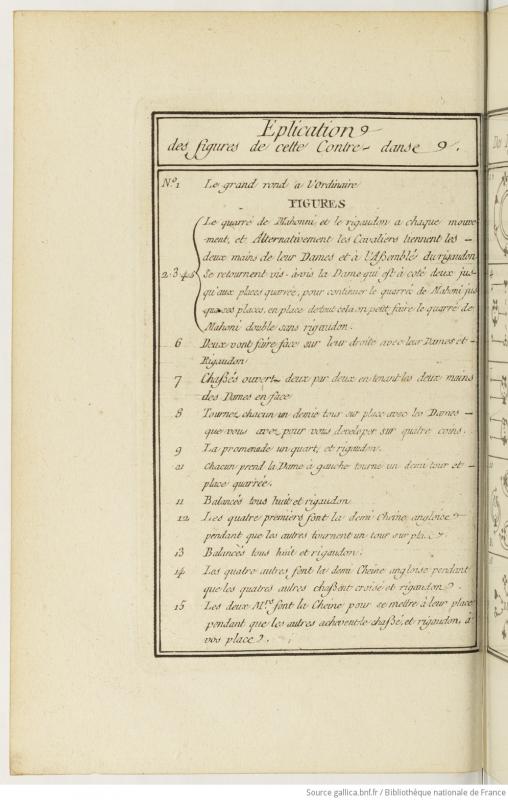 Eplication
des figures de cette Contre-danse.
N.º 1 Le grand rond a l'Ordinaire
FIGURES
Le quarré de Mahonni et le rigaudon a chaque mouve-
ment, et Alternativement les Cavaliers tiennent les
deux mains de leur Dames et à l'Assemblé du rigaudon
2.3.4.5 Se retournent vis-à-vis la Dame qui est à coté deux jus-
qu'aux places quarrée, pour continuer le quarrée de Mahoni jus
qua ses places, en place de tout cela on petit faire le quarré de
Mahoni double sans rigaudon.
6 Deux vont faire face sur leur droite avec leur Dames et
Rigaudon
7 Chassés ouvert deux par deux en tenant les deux mains
des Dames en face
8 Tournez chacun un demie tour sur place avec les Dames
que vous avez pour vous developer sur quatre coins.
9 La promenade un quart, et rigaudon.
chacun prend la Dame à gauche tourne un demi tour et
place quarrée.
11 Balancés tous huit et rigaudon
12 Les quatre premiers font la demi Cheine angloise
pendant que les autres tournent un tour sur place.
13 Balancés tous huit et rigaudon.
14 Les quatre autres font la demi Cheine angloise pendant
que les quatres autres chassent croisé et rigaudon.
15 Les deux M.rs font la Cheine pour se mettre à leur place
pendant que les autres achevent le chassé, et rigaudon, a
vos place.
Source gallica.bnf.fr / Bibliothèque nationale de France